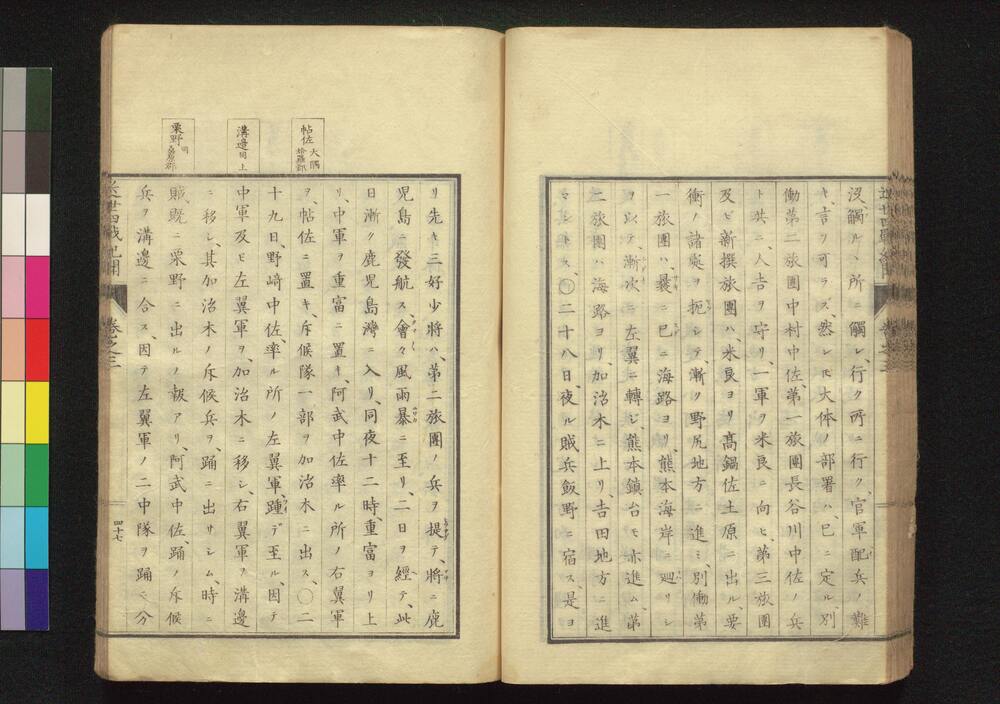 沒觸ルヽ所ニ觸レ、行ク所ニ行ク、官軍配兵ノ難
キ、言ヲ可ラズ、然レ𪜈大体ノ部署ハ、已ニ定ル、別
働第二旅團中村中佐、第一旅團長谷川中佐ノ兵
ト共ニ、人吉ヲ守リ、一軍ヲ米良ニ向ヒ、第三旅團
及ビ新撰旅團ハ米良ヨリ髙鍋佐土原ニ出ル、要
衝ノ諸製ヲ扼シテ、漸ク野尻地方ニ進ミ、別働第
一旅團ハ、曩ニ已ニ海路ヨリ、熊本海岸ニ廻リシ
ヲ以テ、漸次ニ左翼ニ轉ジ、熊本鎮台モ亦進ム、第
二旅團ハ海路ヨリ、加治木ニ上リ、吉田地方ニ進
マントス、○二十八日、夜ル賊兵飯野ニ宿ス、是ヨ
近世四戰紀聞
卷之三
帖佐 大隅姶羅郡
溝邉 同上
栗野 同桑原郡
リ先キ三好少將ハ、第二旅團ノ兵ヲ提テ、將ニ鹿
児島ニ發航ス、會々風雨暴ニ至リ、二日ヲ經テ、此
日漸ク鹿児島灣ニ入リ、同夜十二時、重富ヨリ上
リ、中軍ヲ重富ニ置キ、阿武中佐率ル所ノ右翼軍
ヲ、帖佐ニ置キ、斥候隊一部ヲ加治木ニ出ス、○二
十九日、野﨑中佐、率ル所ノ左翼軍、踵デ至ル、因テ
中軍及ビ左翼軍ヲ、加治木ニ移シ、右翼軍ヲ溝邉
ニ移シ、其加治木ノ斥候兵ヲ、踊ニ出サシム、時ニ
賊既ニ栗野ニ出ルノ報アリ、阿武中佐、踊ノ斥候
兵ヲ溝邉ニ合ス、因テ左翼軍ノ二中隊ヲ踊ニ分
近世四戰紀聞
卷之三
四十七